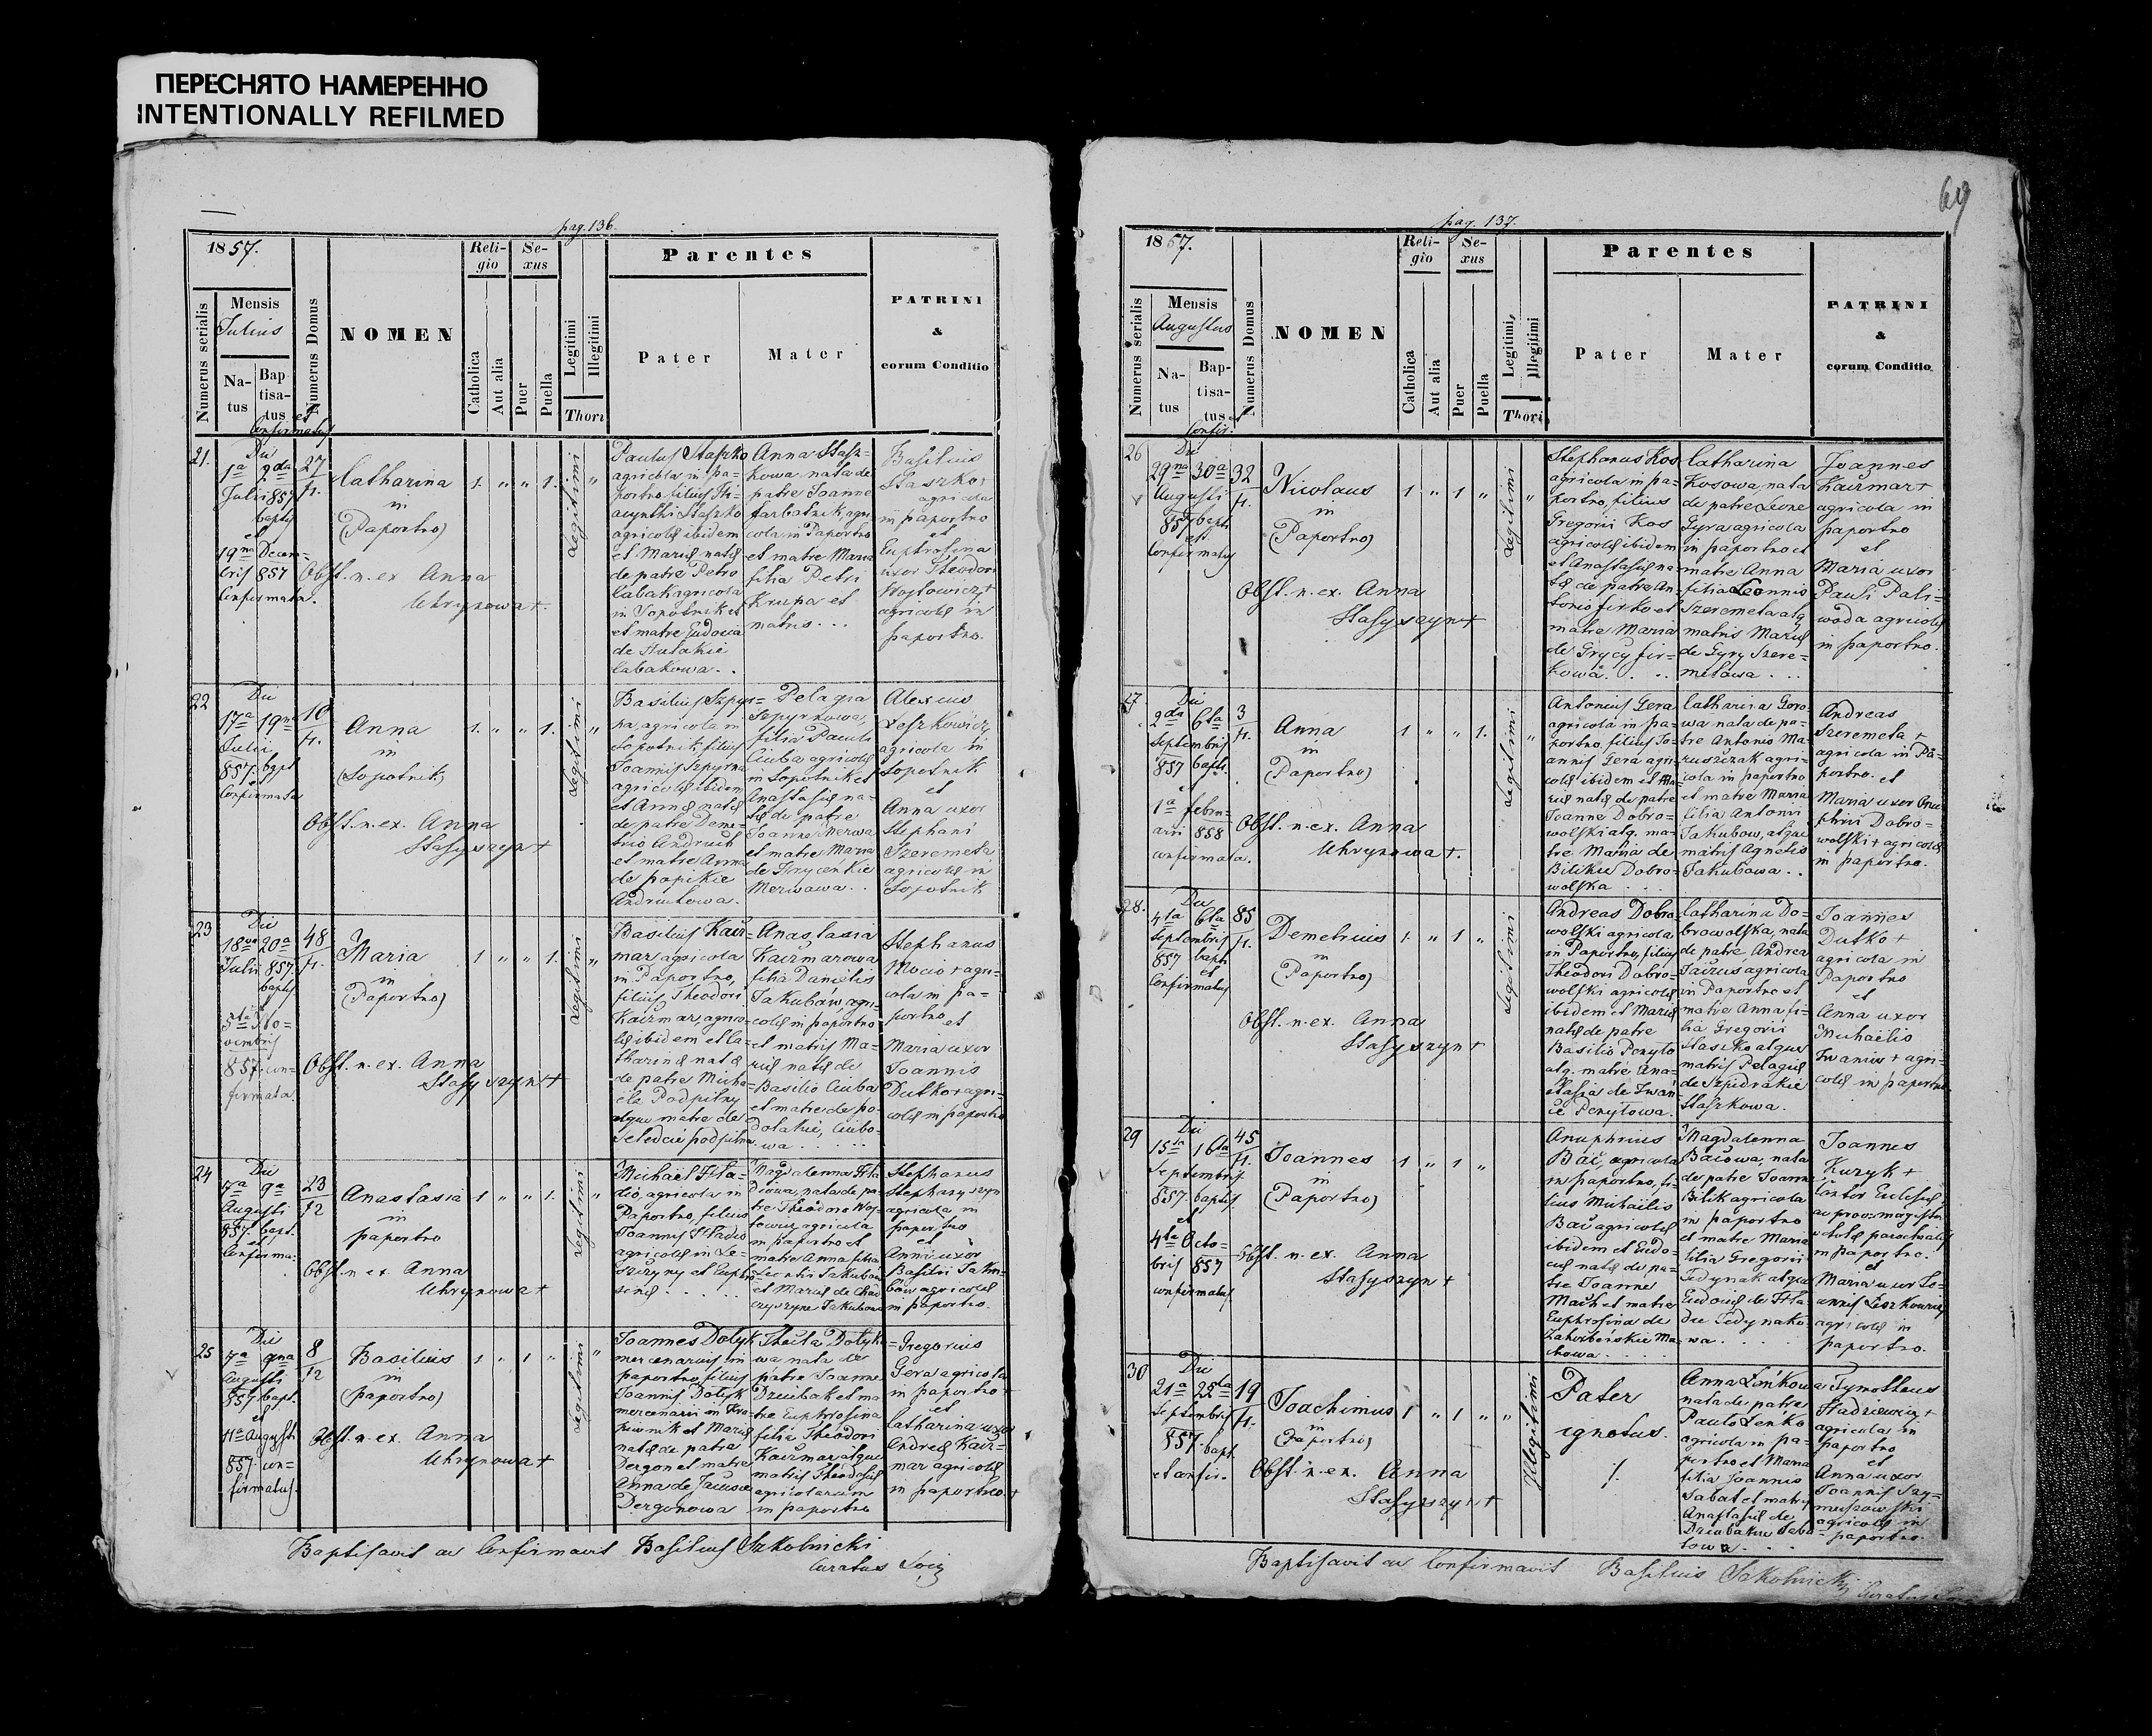 ПЕРЕСНЯТО НАМЕРЕННО
INTENTIONALLY REFILMED
pag. 136.
1857.
Numerus serialis
Mensis
Julius
Natus
Baptisatus
et
Confirmatus
Numerus Domus
NOMEN
Religio
Catholica
Aut alia
Sexus
Puer
Puella
Legitimi
Illegitimi
Thori
Parentes
Pater
Mater
PATRINI
&
eorum Conditio
21.
Die
1a 2da
Julii 857
bapt
et
19na Decem=
bris 857
Confirmata.
27
Catharina
in
(Paportno)
1. " " 1.
Legitimi
"
Obst. n. ex Anna
Uhrynowa +.
Paulus Staszko
agricola in Pa=
portno, filius Hi=
acynthi Staszko
agricolæ ibidem
et Mariæ natæ
de patre Petro
Cabak agricola
in Sopotnik et
et matre Eudocia
de
Cabakowa. .
Anna Stasz=
kowa, nata de
patre Joanne
agri=
cola in Paportno
et matre Maria
filia Petri
Krupa et
matris . . .
Basilius
Staszko +
agricola
in paportno
et
Euphrosina
uxor Theodori
Woytowicz +
agricolæ in
paportno.
22
Die
17a 19na
Julii
857. bapt
et
Confirmata
10
Anna
in
(Sopotnik)
1. " " 1.
Legitimi
"
Obst. n. ex. Anna
Stasyszyn +
Basilius Szpyr=
ka, agricola in
Sopotnik, filius
Joannis Szpyrka
agricolæ ibidem
et Annæ natæ
de patre Deme=
trio Andruch
et matre Anna
de papikie
Andruchowa.
Pelagia
Szpyrkowa,
filia Pauli
Ciuba agricolæ
in Sopotnik et
Anastasiæ na=
tæ de patre
Joanne Merwa
et matre Maria
de Hrycenkie
Merwowa . .
Alexius
Leszkowicz
agricola in
Sopotnik
et
Anna uxor
Stephani
Szeremeta
agricolæ in
Sopotnik
23
Die
18va 20a
Julii 857.
bapt
5ta No=
vembris
857. con=
firmata
48
Maria
in
(Paportno)
1 " " 1.
Legitimi
"
Obst. n. ex. Anna
Stasyszyn +
Basilius Kacz=
mar agricola
in Paportno,
filius Theodori
Kaczmar, agrico=
læ ibidem et Ca=
tharinæ natæ
de patre Micha=
ele Podpitny
atque matre de
Anastasia
Kaczmarowa
filia Danielis
Jakubow, agri=
colæ in paportno
et matris Ma=
riæ natæ de
Basilio Ciuba
et matre de po=
Ciubo=
wa . . . . .
Stephanus
Mocio + agri=
cola in pa=
portno
et
Maria uxor
Joannis
Dutko + agri=
colæ in paportno
24
Die
7a 9a
Augusti
857. bapt.
et
Confirma:
23
12
Anastasia
in
paportno
1 " " 1.
Legitimi
"
Obst. n ex. Anna
Uhrynowa +
Michael Hla=
dio, agricola in
Paportno, filius
Joannis Hladio
agricolæ in Le=
szczyny et Euphro=
sinæ . . . . .
Magdalenna Hla
diowa, nata de pa=
tre Theodoro
agricola
in paportno et
matre Anna filia
Leontii Jakubow
et Mariæ de
Jakubowa
Stephanus
Stephaniszyn
agricola in
paportno
et
Anna uxor
Basilii Jaku=
bow agricolæ
in paportno.
25
Die
7a 9na
Augusti
857 bapt.
et
11a Augusti
857. con=
firmatus.
8
12
Basilius
in
(paportno)
1 " 1 "
Legitimi
"
Obst. n. ex. Anna
Uhrynowa +
Joannes Dolyk
mercenarius in
paportno, filius
Joannis Dolyk
mercenarii in
et Mariæ
natæ de patre
Dergon et matre
Anna de
Dergonowa
Thecla Dolyk=
wa, nata de
patre Joanne
Dziubak et ma
tre Euphrosina
filia Theodori
Kaczmar atque
matris Theodosiæ
agricolarum
in paportno
Gregorius
Gera agricola
in paportno +
et
Catharina uxor
Andreæ Kacz=
mar agricolæ
in paportno. +
Baptisavit ac Confirmavit Basilius Szkolnicki
Curatus Loci
69
pag. 137.
1857.
Numerus serialis
Mensis
Augustus
Natus
Baptisatus
et
Confir.
Numerus Domus
NOMEN
Religio
Catholica
Aut alia
Sexus
Puer
Puella
Legitimi
Illegitimi
Thori
Parentes
Pater
Mater
PATRINI
&
eorum Conditio
26
Die
29na 30a
Augusti
857 bapt.
et
Confirmatus
32
Nicolaus
in
(Paportno)
1 " 1 "
Legitimi
"
Obst. n. ex. Anna
Stasyszyn +
Stephanus Kos
agricola in pa=
portno, filius
Gregorii Kos
agricolæ ibidem
et Anastasiæ na=
tæ de patre An=
tonio Firko et
matre Maria
de Grycy Fir=
kowa. . . .
Catharina
Kosowa, nata
de patre Leone
Gyra agricola
in paportno et
matre Anna
filia Leonnis
Szeremeta atq
matris Mariæ
de Gyry Szere=
metowa . . .
Joannes
Kaczmar +
agricola in
paportno
et
Maria uxor
Pauli Pali=
woda agricolæ
in paportno.
27.
Die
2da 6ta
Septembris
857 bapt.
et
1a Febru=
arii 858
confirmata.
3
Anna
in
(Paportno)
1 " " 1.
Legitimi
"
Obst. n. ex. Anna
Uhrynowa +.
Antonius Gera
agricola in pa=
portno, filius Jo=
annis Gera agri=
colæ ibidem et Ma=
riæ natæ de patre
Joanne Dobro=
wolski atq. ma=
tre Maria de
Bilikie Dobro=
wolska . . .
Catharina Gero=
wa nata de pa=
tre Antonio Ma=
ruszczak agri=
cola in paportno
et matre Maria
filia Antonii
Jakubow, atque
matris Agnetis
Jakubowa . .
Andreas
Szeremeta +
agricola in Pa=
portno. et
Maria uxor Onu
phrii Dobro=
wolski + agricolæ
in paportno.
28.
Die
4ta 6ta
Septembris
857 bapt
et
Confirmatus
85
Demetrius
in
(Paportno)
1. " 1 "
Legitimi
Obst. n. ex. Anna
Stasyszyn +
Andreas Dobro=
wolski agricola
in Paportno, filius
Theodori Dobro=
wolski agricolæ
ibidem et Mariæ
natæ de patre
Basilio Penyto
atq. matre Ana=
stasia de Iwan=
cie Penytowa.
Catharina Do=
browolska, nata
de patre, Andrea
agricola
in Paportno et
matre Anna fi=
lia Gregorii
Staszko atque
matris Pelagiæ
de
Staszkowa.
Joannes
Dutko +
agricola in
Paportno
et
Anna uxor
Michaëlis
Iwaniw + agri=
colæ in paportno
29
Die
15ta 16ta
Septembris
857. baptis
et
4ta Octo=
bris 857
confirmatus
45
Joannes
in
(Paportno)
1 " 1 "
Obst. n. ex. Anna
Stasyszyn +
Anuphrius
Bać, agricola
in paportno, fi=
lius Michaëlis
Bać agricolæ
ibidem et Eudo=
ciæ natæ de pa=
tre Joanne
Mach et matre
Euphrosina de
Ma=
chowa . . . .
Magdalenna
Baćowa, nata
de patre Joanne
Bilik agricola
in paportno
et matre Maria
filia Gregorii
Fedynak atque
Eudociæ de Hla=
die Fedynako=
wa . . . .
Joannes
Kuzyk +
Cantor Ecclesiæ
ac prov: magister
scholæ parochialis
in paportno.
et
Maria uxor Jo=
annis Leszkowicz
agricolæ in
paportno.
30
Die
21a 22da
Septembris
857. bapt.
et confir.
19
Joachimus
in
(Paportno)
1 " 1 " "
Illegitimi
Obst. n. ex. Anna
Stasyszyn +
Pater
ignotus.
Anna Leńkowa
nata de patre
Paulo Leńko
agricola in pa=
portno et Maria
filia Joannis
Sabat et matris
Anastasiæ de
Dziubakie Saba=
towa . . .
Tymotheus
Hadziewicz +
agricola in
paportno
et
Anna uxor
Joannis Szy=
maszowski
agricolæ in
paportno.
Baptisavit ac Confirmavit Basilius Szkolnicki Curatus Loci